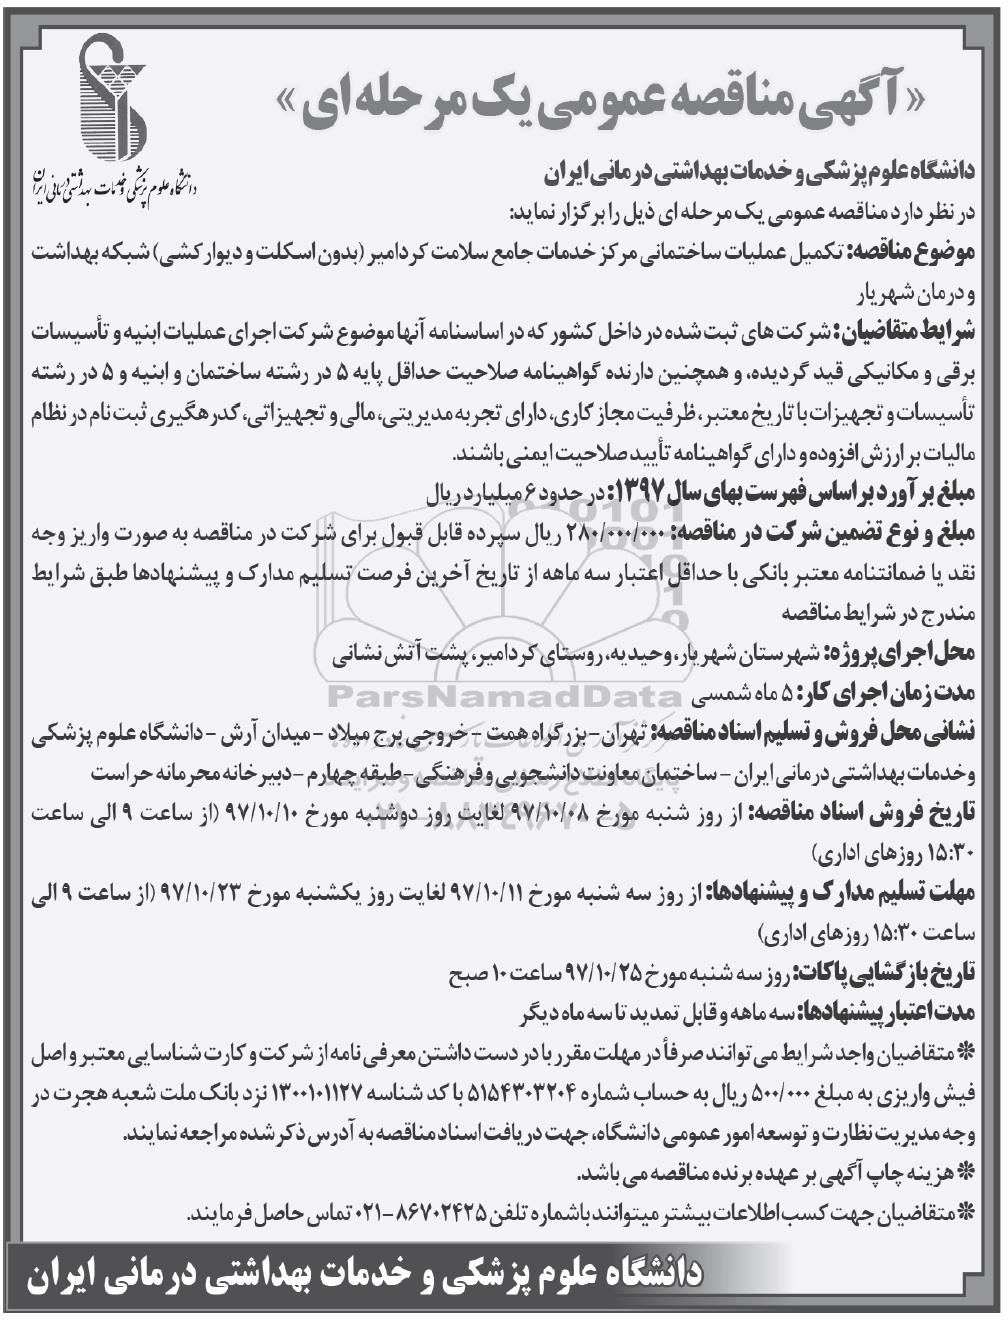 «آگهی مناقصه عمومی یک مرحله ای»
دانشگاه علوم پزشکی و خدمات بهداشتی درمانی ایران
دانشگاه علوم پزشکی و خدمات بهداشتی درمانی ایران
در نظر دارد مناقصه عمومی یک مرحله ای ذیل را برگزار نماید:
موضوع مناقصه: تکمیل عملیات ساختمانی مرکز خدمات جامع سلامت کردامیر (بدون اسکلت و دیوارکشی) شبکه بهداشت
و درمان شهریار
شرایط متقاضیان: شرکت های ثبت شده در داخل کشور که در اساسنامه آنها موضوع شرکت اجرای عملیات ابنیه و تأسیسات
برقی و مکانیکی قید گردیده، و همچنین دارنده گواهینامه صلاحیت حداقل پایه ۵ در رشته ساختمان و ابنیه و ۵ در رشته
تأسیسات و تجهیزات با تاریخ معتبر، ظرفیت مجاز کاری، دارای تجربه مدیریتی، مالی و تجهیزاتی، کدرهگیری ثبت نام در نظام
مالیات بر ارزش افزوده و دارای گواهینامه تأیید صلاحیت ایمنی باشند.
مبلغ برآورد براساس فهرست بهای سال ۱۳۹۷: در حدود ۶ میلیارد ریال
مبلغ و نوع تضمین شرکت در مناقصه: ۲۸۰/۰۰۰/۰۰۰ ریال سپرده قابل قبول برای شرکت در مناقصه به صورت واریز وجه
نقد یا ضمانتنامه معتبر بانکی با حداقل اعتبار سه ماهه از تاریخ آخرین فرصت تسلیم مدارک و پیشنهادها طبق شرایط
مندرج در شرایط مناقصه
محل اجرای پروژه: شهرستان شهریار، وحیدیه، روستای کردامیر، پشت آتش نشانی
مدت زمان اجرای کار: ۵ ماه شمسی
ParsNamadData
نشانی محل فروش و تسلیم اسناد مناقصه: تهران-بزرگراه همت -خروجی برج میلاد -میدان آرش -دانشگاه علوم پزشکی
وخدمات بهداشتی درمانی ایران - ساختمان معاونت دانشجویی و فرهنگی -طبقه چهارم -دبیرخانه محرمانه حراست
تاریخ فروش اسناد مناقصه: از روز شنبه مورخ ۹۷/۱۰/۰۸ لغایت روز دوشنبه مورخ ۹۷/۱۰/۱۰ (از ساعت ۹ الی ساعت
۱۵:۳۰ روزهای اداری)
مهلت تسلیم مدارک و پیشنهادها: از روز سه شنبه مورخ ۹۷/۱۰/۱۱ لغایت روز یکشنبه مورخ ۹۷/۱۰/۲۳ (از ساعت ۹ الی
ساعت ۱۵:۳۰ روزهای اداری)
تاریخ بازگشایی پاکات: روز سه شنبه مورخ ۹۷/۱۰/۲۵ ساعت ۱۰ صبح
مدت اعتبار پیشنهادها: سه ماهه و قابل تمدید تا سه ماه دیگر
❊ متقاضیان واجد شرایط می توانند صرفاً در مهلت مقرر با در دست داشتن معرفی نامه از شرکت و کارت شناسایی معتبر و اصل
فیش واریزی به مبلغ ۵۰۰/۰۰۰ ریال به حساب شماره ۵۱۵۴۳۰۳۲۰۴ با کد شناسه ۱۳۰۰۱۰۱۱۲۷ نزد بانک ملت شعبه هجرت در
وجه مدیریت نظارت و توسعه امور عمومی دانشگاه، جهت دریافت اسناد مناقصه به آدرس ذکر شده مراجعه نمایند.
❊ هزینه چاپ آگهی بر عهده برنده مناقصه می باشد.
❊ متقاضیان جهت کسب اطلاعات بیشتر میتوانند باشماره تلفن ۸۶۷۰۲۴۲۵-۰۲۱ تماس حاصل فرمایند.
دانشگاه علوم پزشکی و خدمات بهداشتی درمانی ایران